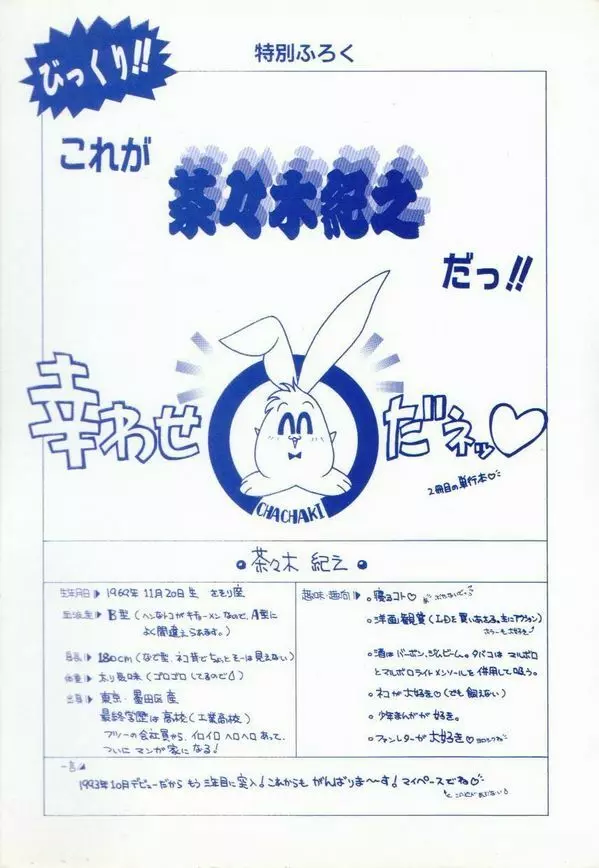 びっくり!!
特別ふろく
これが
茶々木紀之
だっ!!
幸わせ
だネッ♡
CHACHAKI
2冊目の単行本♡
茶々木 紀之
生年月日▷ 1969年 11月20日生 さそり座
血液型▷ B型(ヘンなトコがキチョーメンなので、A型に
よく間違えられます。)
身長▷ 180cm(なで型、ネコ背でちょっとそーは見えない)
体重▷ 太り気味(ゴロゴロしてるので)
出身▷ 東京・墨田区産
最終学歴は高校(工業高校)
フツーの会社員から、イロイロ ヘロヘロ あって、
ついに マンガ家になる!
趣味・趣向▷ 。寝るコト♡
。洋画観賞(LDを買いあさる。主にアクション)
ホラーも大好き
。酒はバーボン、ジムビーム。タバコは マルボロ
とマルボロライトメンソールを併用して吸う。
。ネコが大好き♡(でも飼えない)
。少年まんがが好き。
。ファンレターが大好き♡
一言
1993年10月デビューだから もう 三年目に突入!これからも がんばりま〜す!マイペースでね♡